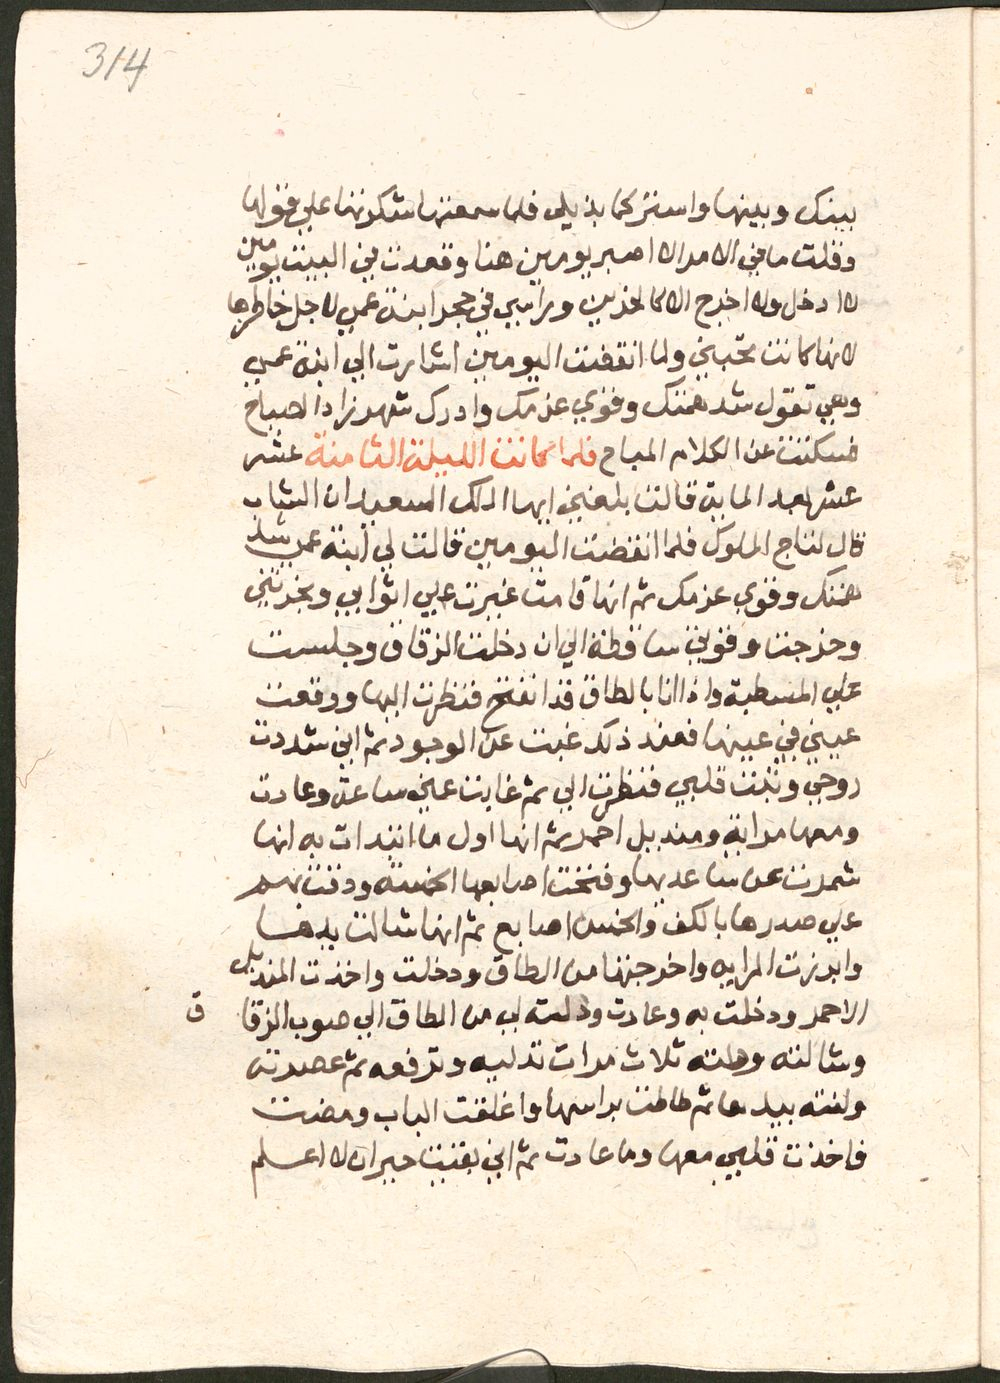 314
بينك وبينها واستركما بذيلي فلما سمعتها شكرتها علي قولها
وقلت ما في الامر الا اصبر يومين هنا وقعدت في البيت يومين
لا ادخل ولا اخرج الا كالحزين وراسي في حجر ابنة عمي لاجل خاطرها
لانها كانت تحبني ولما انقضت اليومين اشارت الي ابنة عمي
وهي تقول شد همتك وقوي عزمك وادرك شهرزاد الصباح
فسكتت عن الكلام المباح فلما كانت الليلة الثامنة عشر
عشر بعد الماية قالت بلغني ايها الملك السعيد ان الشاب
قال لتاج الملوك فلما انقضت اليومين قالت لي ابنة عمي شد
همتك وقوي عزمك ثم انها قامت غيرت علي اثوابي وبخرتني
وخرجت وقوتي ساقطة الي ان دخلت الزقاق وجلست
علي المسطبة واذا انا بالطاق قد انفتح فنظرت اليها ووقعت
عيني في عينها فعند ذلك غبت عن الوجود ثم اني شددت
روحي وثبت قلبي فنظرت الي ثم غابت عني ساعة وعادت
ومعها مراية ومنديل احمر ثم انها اول ما ابتدات به انها
شمرت عن ساعديها وفتحت اصابعها الخمسة ودقت بهم
علي صدرها بالكف والخمس اصابع ثم انها شالت يدها
وابرزت المرايه واخرجتها من الطاق ودخلت واخذت المنديل
الاحمر ودخلت به وعادت ودلته لي من الطاق الي صوب الزقا
ق
وشالته وحلته ثلاث مرات تدليه وترفعه ثم عصرته
ولفته بيدها ثم طاطت براسها واغلقت الباب ومضت
فاخذت قلبي معها وما عادت ثم اني بقيت حيران لا اعلم